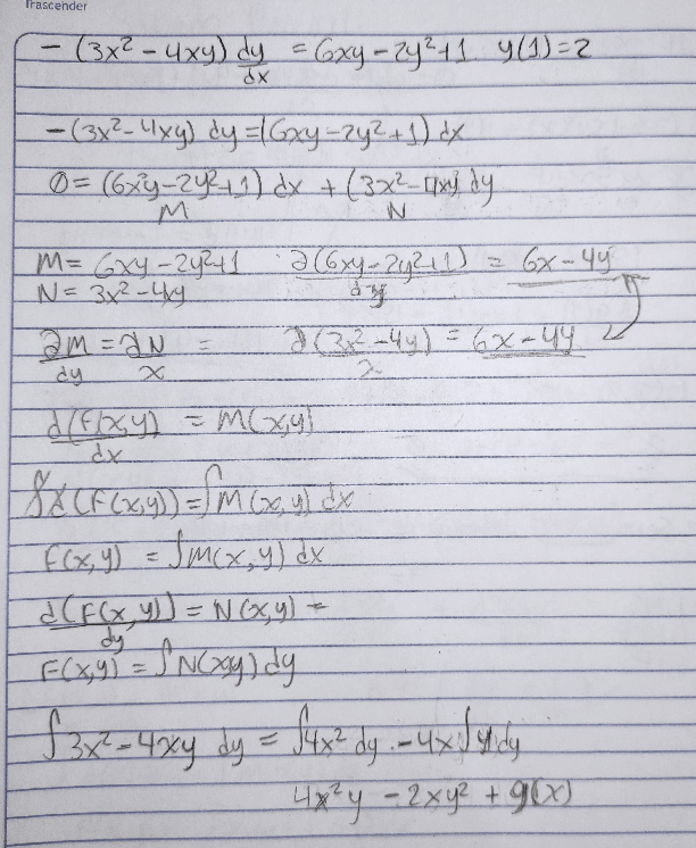 Trascender
- (3x² - 4xy) dy/dx = 6xy - 2y² + 1 y(1) = 2
- (3x² - 4xy) dy = (6xy - 2y² + 1) dx
0 = (6x²y - 2y² + 1) dx + (3x² - 4xy) dy
M N
M = 6xy - 2y² + 1 ∂(6xy - 2y² + 1)/dy = 6x - 4y
N = 3x² - 4xy
∂M/dy = ∂N/x = ∂(3x² - 4y) = 6x - 4y
d(F(x,y))/dx = M(x,y)
∫d(F(x,y)) = ∫M(x,y) dx
F(x,y) = ∫M(x,y) dx
d(F(x,y))/dy = N(x,y) =
F(x,y) = ∫N(x,y) dy
∫3x² - 4xy dy = ∫4x² dy - 4x∫y dy
4x²y - 2xy² + g(x)